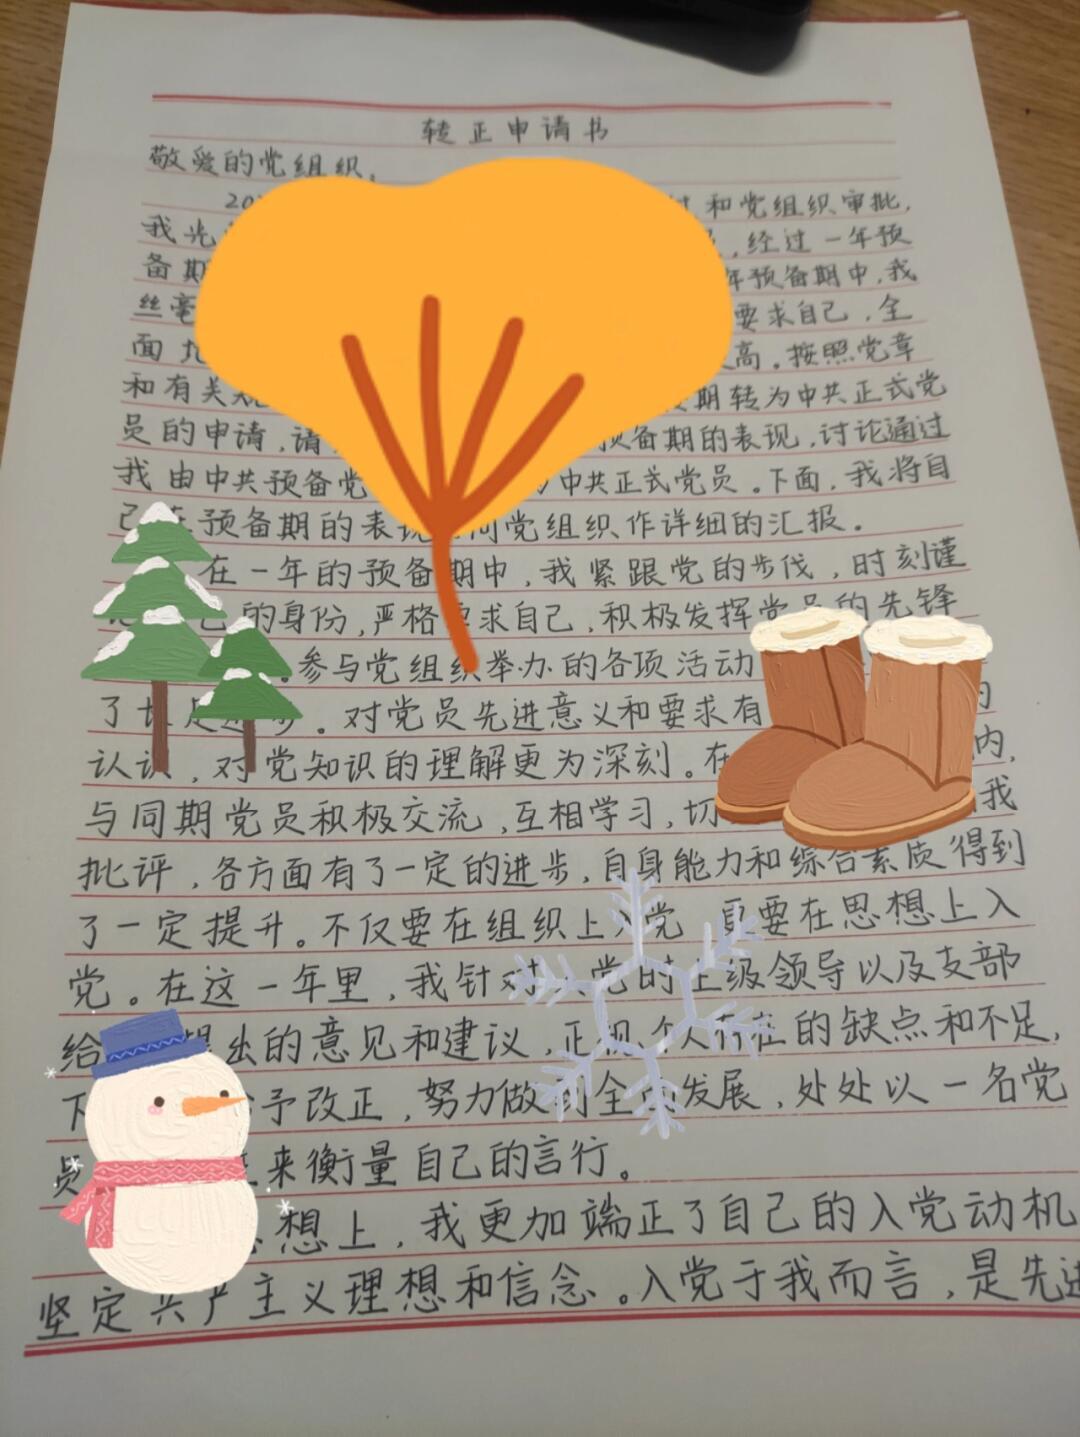 转正申请书
敬爱的党组织:
和党组织审批,
我光 ,经过一年预
备期 年预备期中,我
丝毫 要求自己,全
面 高。按照党章
和有关 期转为中共正式党
员的申请,请 预备期的表现,讨论通过
我由中共预备党 中共正式党员。下面,我将自
预备期的表现 向党组织作详细的汇报。
在一年的预备期中,我紧跟党的步伐,时刻谨
的身份,严格要求自己,积极发挥党员的先锋
。参与党组织举办的各项活动
了 进步。对党员先进意义和要求有
认识,对党知识的理解更为深刻。在 内,
与同期党员积极交流,互相学习,切 我
批评,各方面有了一定的进步,自身能力和综合素质得到
了一定提升。不仅要在组织上入党 更要在思想上入
党。在这一年里,我针对 党的上级领导以及支部
给 提出的意见和建议,正视个人存在的缺点和不足,
下 给予改正,努力做到全面发展,处处以一名党
员 来衡量自己的言行。
思想上,我更加端正了自己的入党动机
坚定共产主义理想和信念。入党于我而言,是先进